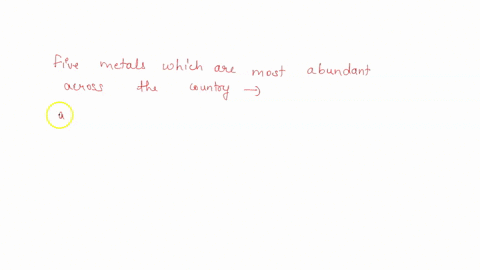 Five metals which are most abundant
across the country →
a